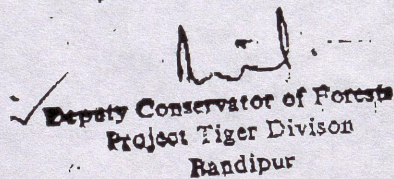 Deputy Conservator of Forests
Project Tiger Divison
Bandipur